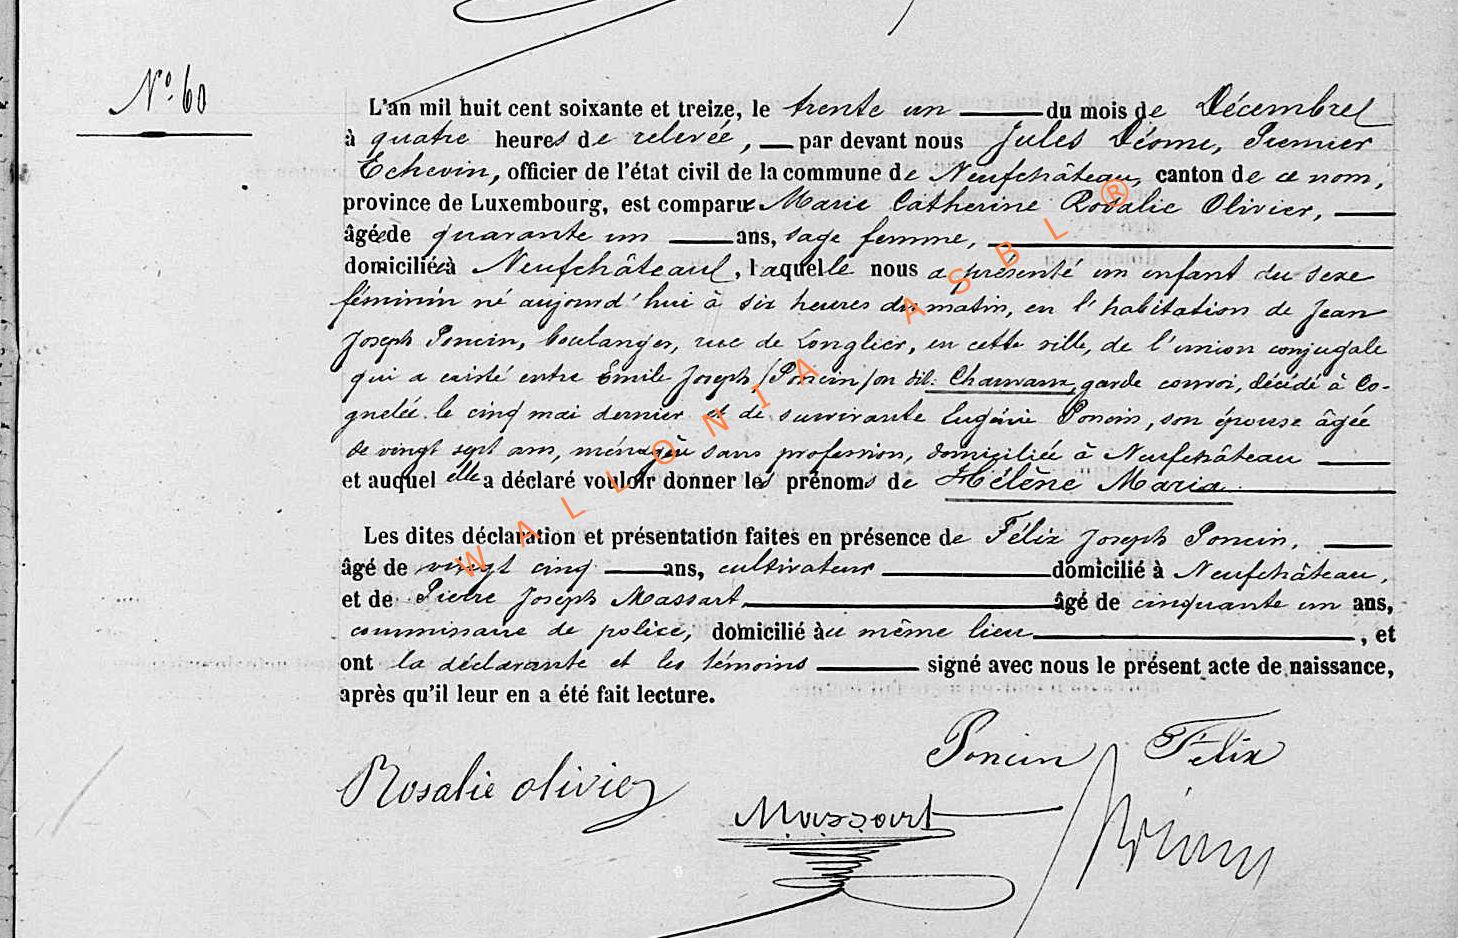 N° 60
L'an mil huit cent soixante et treize, le trente un du mois de Décembre
à quatre heures de relevée, par devant nous Jules Déome, Premier
Echevin, officier de l'état civil de la commune de Neufchâteau, canton de ce nom,
province de Luxembourg, est comparue Marie Catherine Rosalie Olivier,
âgée de quarante un ans, sage femme,
domiciliée à Neufchâteau, laquelle nous a présenté un enfant du sexe
féminin né aujourd'hui à six heures du matin, en l'habitation de Jean
Joseph Poncin, boulanger, rue de Longlier, en cette ville, de l'union conjugale
qui a existé entre Emile Joseph garde convoi, décédé à Co-
gnelée le cinq mai dernier et de survivante Eugénie Poncin, son épouse âgée
de vingt sept ans, ménagère sans profession, domiciliée à Neufchâteau
et auquel elle a déclaré vouloir donner les prénoms de Hélène Maria
Les dites déclaration et présentation faites en présence de Félix Joseph Poncin,
âgé de vingt cinq ans, cultivateur domicilié à Neufchâteau,
et de Pierre Joseph Massart âgé de cinquante un ans,
commissaire de police, domicilié au même lieu, et
ont la déclarante et les témoins signé avec nous le présent acte de naissance,
après qu'il leur en a été fait lecture.
Poncin Félix
Rosalie Olivier
Massart
WALLONIA ASBL ®